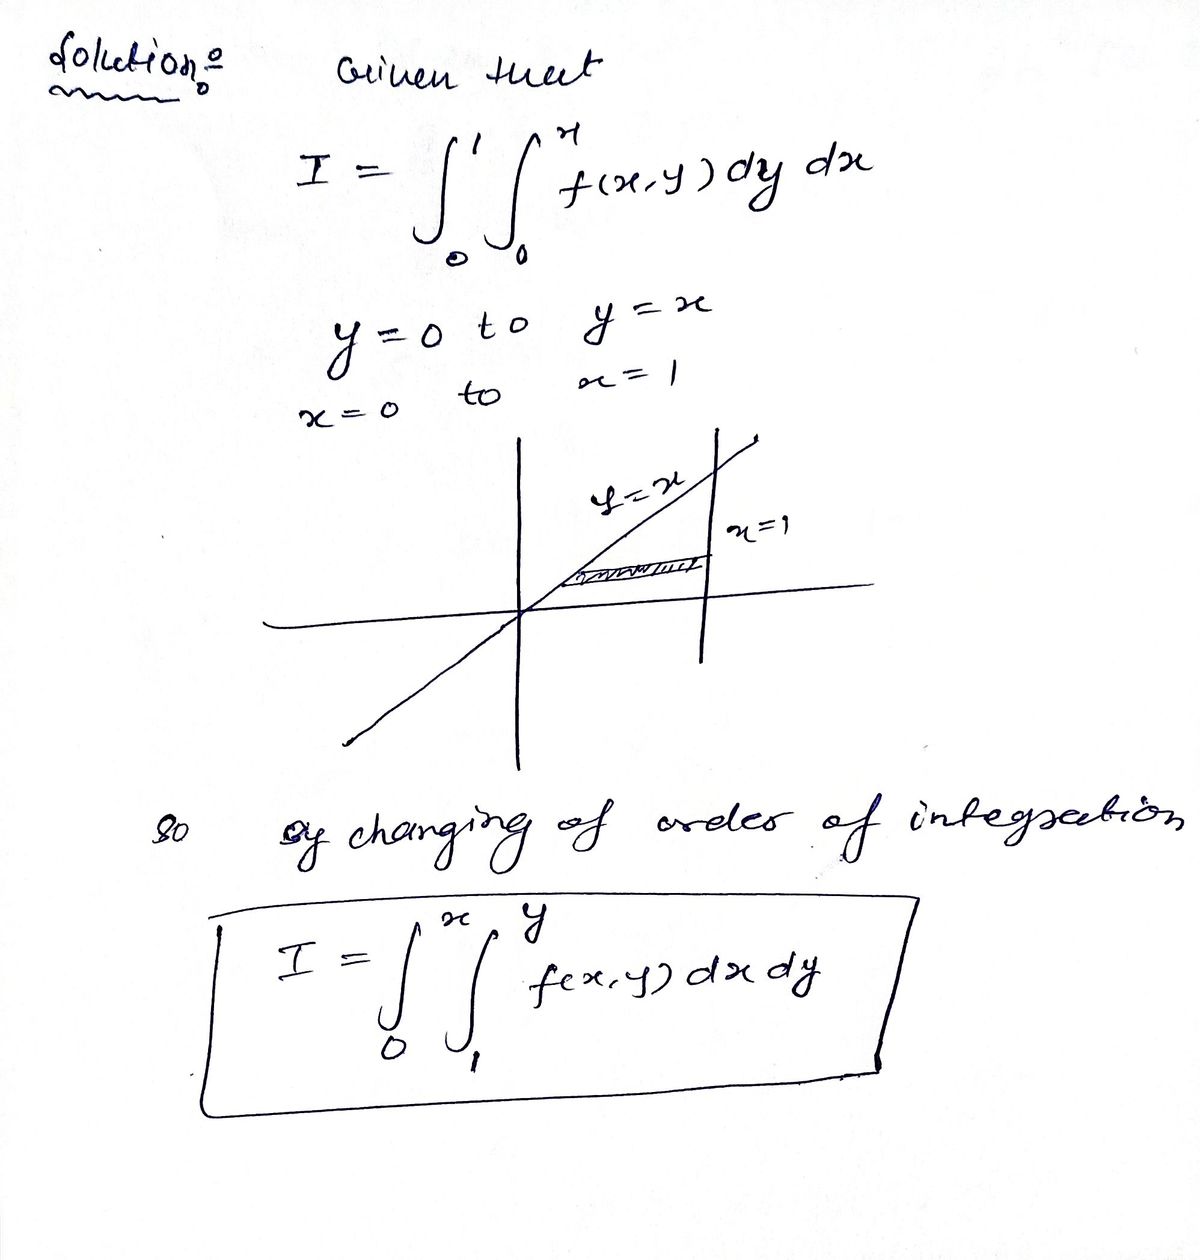 Solution:
Given that
I = ∫₀¹ ∫₀ˣ f(x,y) dy dx
y = 0 to y = x
x = 0 to x = 1
y = x
x = 1
So by changing of order of integration
I = ∫₀ˣ ∫₁ʸ f(x,y) dx dy